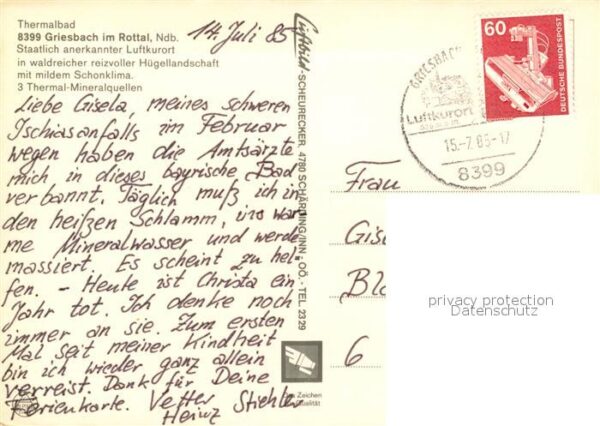 Thermalbad
8399 Griesbach im Rottal, Ndb.
Staatlich anerkannter Luftkurort
in waldreicher reizvoller Hügellandschaft
mit mildem Schonklima.
3 Thermal-Mineralquellen
14. Juli 85
Liebe Gisela, meines schweren
Ischiasanfalls im Februar
wegen haben die Amtsärzte
mich in dieses bayrische Bad
verbannt. Täglich muß ich in
den heißen Schlamm, ins war
me Mineralwasser und werde
massiert. Es scheint zu hel-
fen. - Heute ist Christa ein
Jahr tot. Ich denke noch
immer an sie. Zum ersten
Mal seit meiner Kindheit
bin ich wieder ganz allein
verreist. Dank für Deine
Ferienkarte. Vetter
Heinz Stiehler
Luftbild-SCHEURECKER, 4780 SCHÄRDING/INN, OÖ. - TEL. 2329
Zeichen
Qualität
60
DEUTSCHE BUNDESPOST
GRIESBACH
Luftkurort
15.-7.85-17
8399
Frau
Gis
Bl
6
privacy protection
Datenschutz